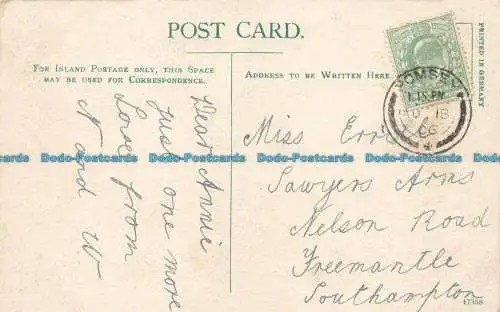 POST CARD.
FOR INLAND POSTAGE ONLY, THIS SPACE
MAY BE USED FOR CORRESPONDENCE.
ADDRESS TO BE WRITTEN HERE.
PRINTED IN GERMANY
1.15 PM
06
Dear Annie
just one more
Love from
N and W
Miss
Sawyers Arms
Nelson Road
Freemantle
Southampton
47358
Dodo-Postcards Dodo-Postcards Dodo-Postcards Dodo-Postcards